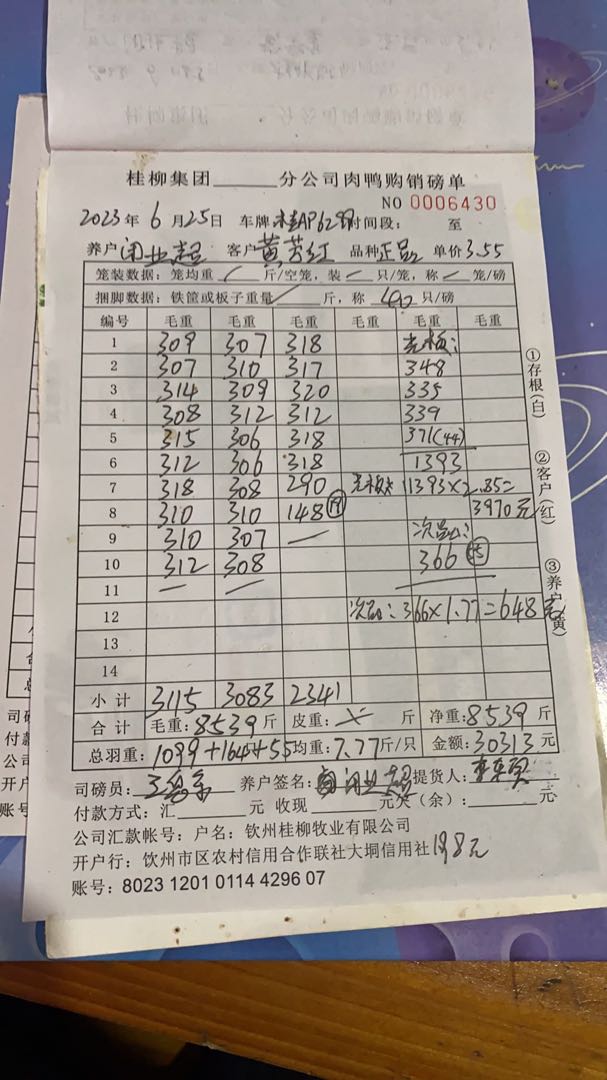 桂柳集团______分公司肉鸭购销磅单
NO 0006430
2023年 6月25日 车牌 桂AP629 时间段: 至
养户 闭业超 客户 黄芳红 品种 正品 单价 3.55
笼装数据: 笼均重 / 斤/空笼, 装 / 只/笼, 称 / 笼/磅
捆脚数据: 铁筐或板子重量 / 斤, 称 40 只/磅
编号 毛重 毛重 毛重 毛重 毛重 毛重
1 309 307 318 毛板:
2 307 310 317 348
3 314 309 320 335
4 308 312 312 339
5 315 306 318 371(44)
6 312 306 318 1393
7 318 308 290 毛板 1393×2.85=
8 310 310 148 (19) 3970元
9 310 307 — 次品:
10 312 308 366 (55)
11 — —
12 次品: 366×1.77=648元
13
14
小计 3115 3083 2341
合计 毛重: 8539 斤 皮重: 斤 净重: 8539 斤
总羽重: 1099+164+55 均重: 7.77 斤/只 金额: 30313 元
司磅员: 养户签名: 闭业超 提货人:
付款方式: 汇______元 收现______元欠(余):______元
公司汇款帐号: 户名: 钦州桂柳牧业有限公司
开户行: 钦州市区农村信用合作联社大垌信用社
账号: 8023 1201 0114 4296 07
①存根(白)
②客户(红)
③养户(黄)
司磅
付款
公
开户
账号